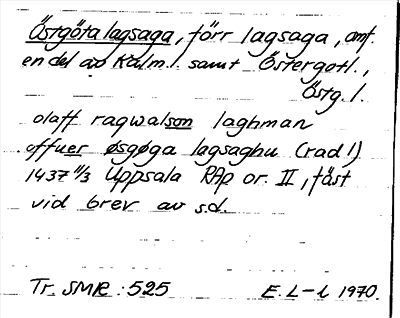 Östgöta lagsaga, förr lagsaga, omf.
en del av Kalm. l. samt Östergötl.,
Östg. l.
olaff ragwalson laghman
offuer øsgøga lagsaghu (rad 1)
1437 11/3 Uppsala RAp or. II, fäst
vid brev av s.d.
Tr. SMR : 525 E. L-l 1970.